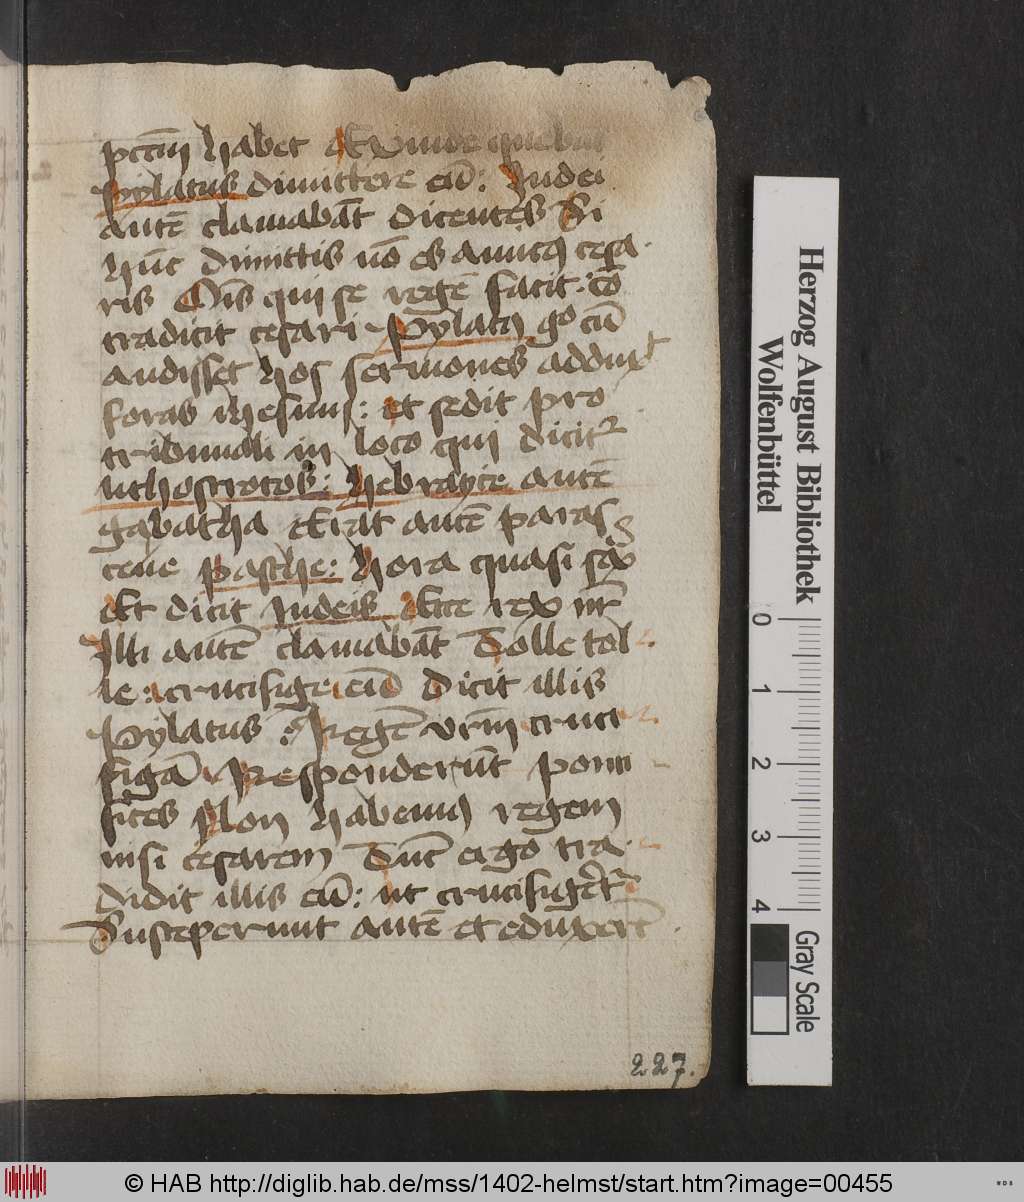 pctm̄ habet Et vnde querebat
Pylatus dimittere eū: Iudei
autē clamabāt dicentes Si
hūc dimittis nō es amicꝰ cesa
ris Om̄is qui se regē facit: cō
tradicit cesari Pylatꝰ gͦ cū
audisset hos sermones adduxͭ
foras ihesum: et sedit pro
tribunali in loco qui dicit᷑
lithostrotos: hebrayce autē
gabatha Erat autē paras
ceue pasche: hora quasi sexͣ
Et dicit Iudeis Ecce rex vr̄
Illi autē clamabāt Tolle tol
le: crucifige eū Dicit illis
Pylatus: Regē vr̄m cruci
figā Responderūt ponti
fices Non habemꝰ regem
nisi cesarem Tūc ergo tra
didit illis eū: ut crucifiger̄t᷑
Susceperunt autē et eduxer̄t
227.
Herzog August Bibliothek
Wolfenbüttel
0 1 2 3 4
Gray Scale
© HAB http://diglib.hab.de/mss/1402-helmst/start.htm?image=00455